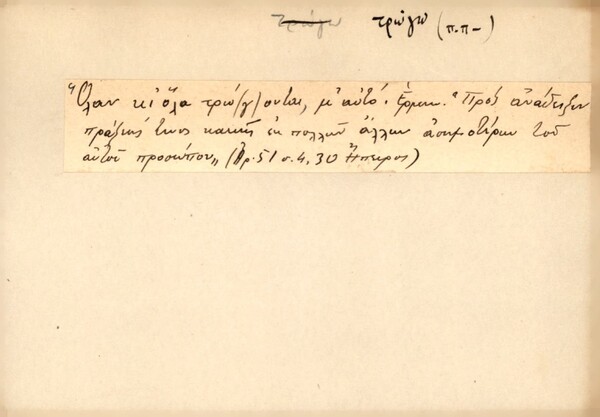 τρώγω τρώγω (π.π-)
"Όλαν κι όλα τρώ(γ)ονται, μ' αὐτό. Ἑρμην. "Πρός ἀνάδειξιν
πράξεώς τινος κακῆς ἐκ πολλῶν ἄλλων ἀσημοτέρων τοῦ
αὐτοῦ προσώπου" (Ἀρ. 51 σ. 4, 30 Ἤπειρος)